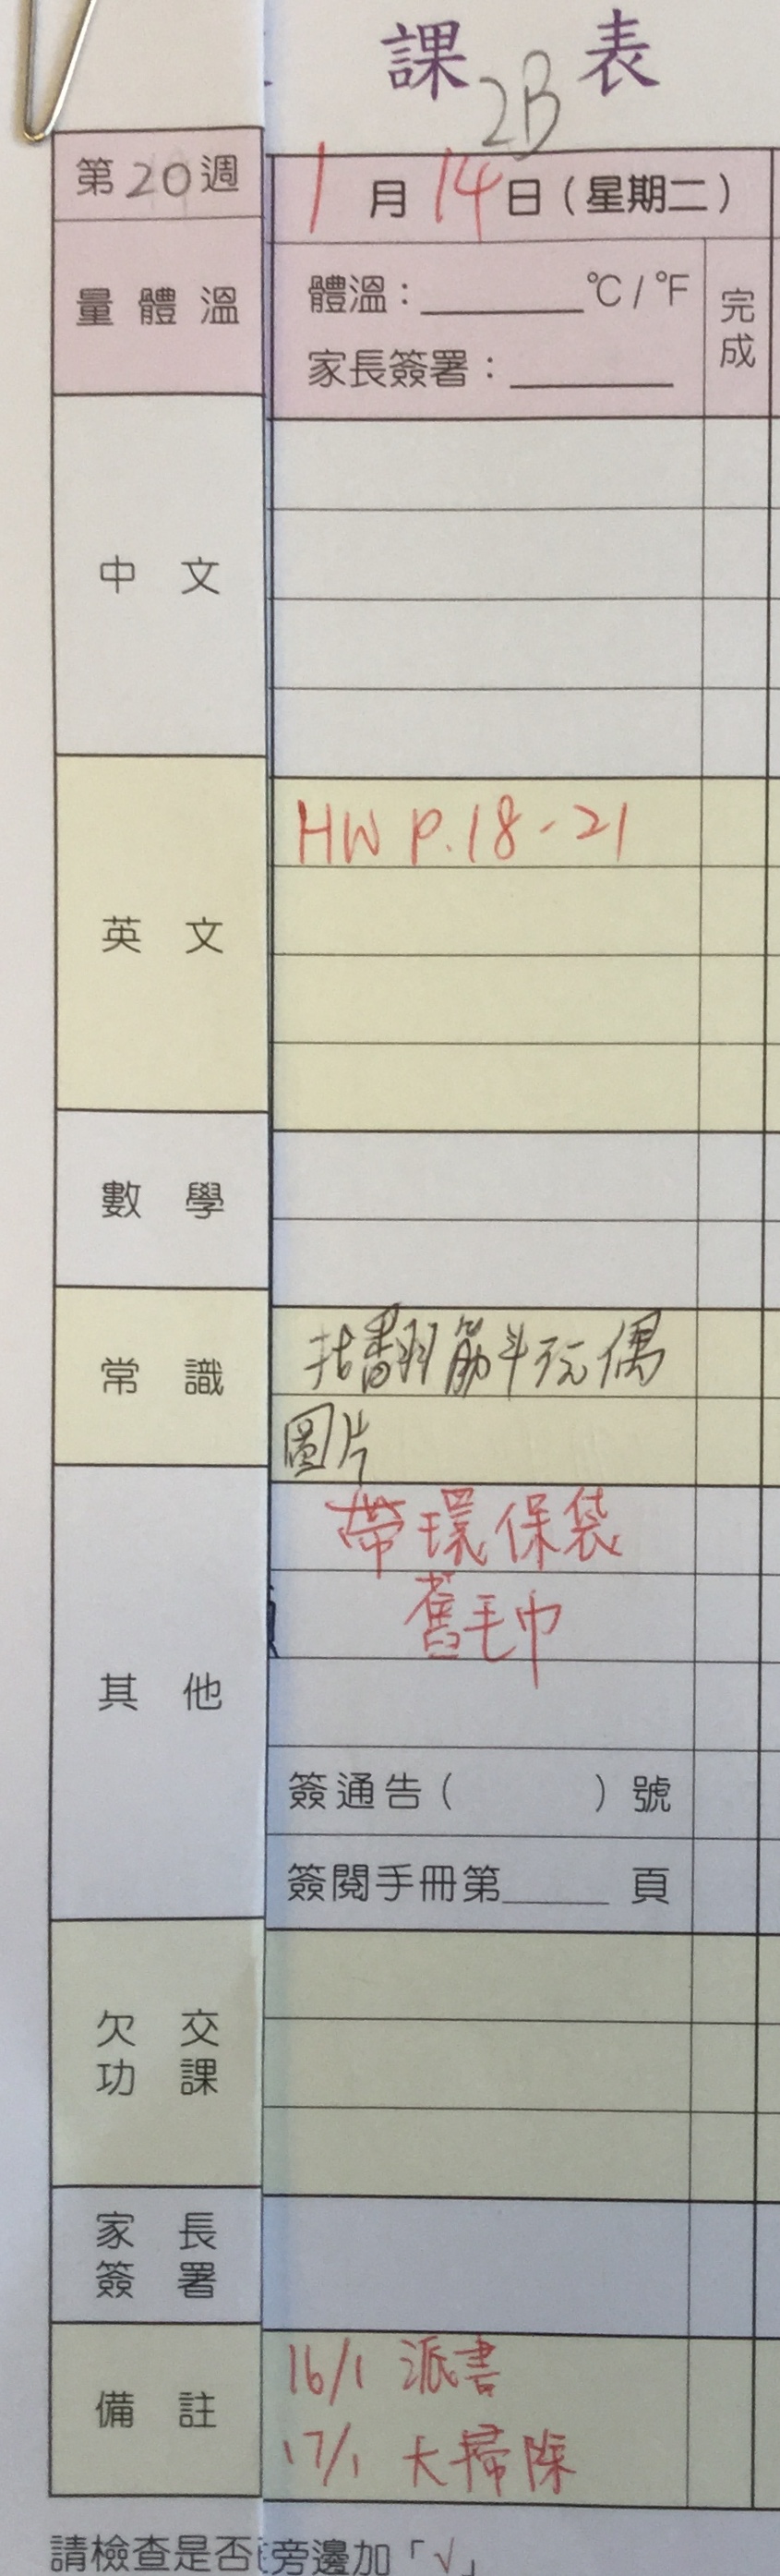 課 表
2B
第20週
1月14日(星期二)
量體溫
體溫：______℃/℉
完成
家長簽署：______
中文
英文
HW P.18-21
數學
常識
找翻筋斗玩偶
圖片
其他
帶環保袋
舊毛巾
簽通告( )號
簽閱手冊第____頁
欠交
功課
家長
簽署
備註
16/1 派書
17/1 大掃除
請檢查是否
旁邊加「√」